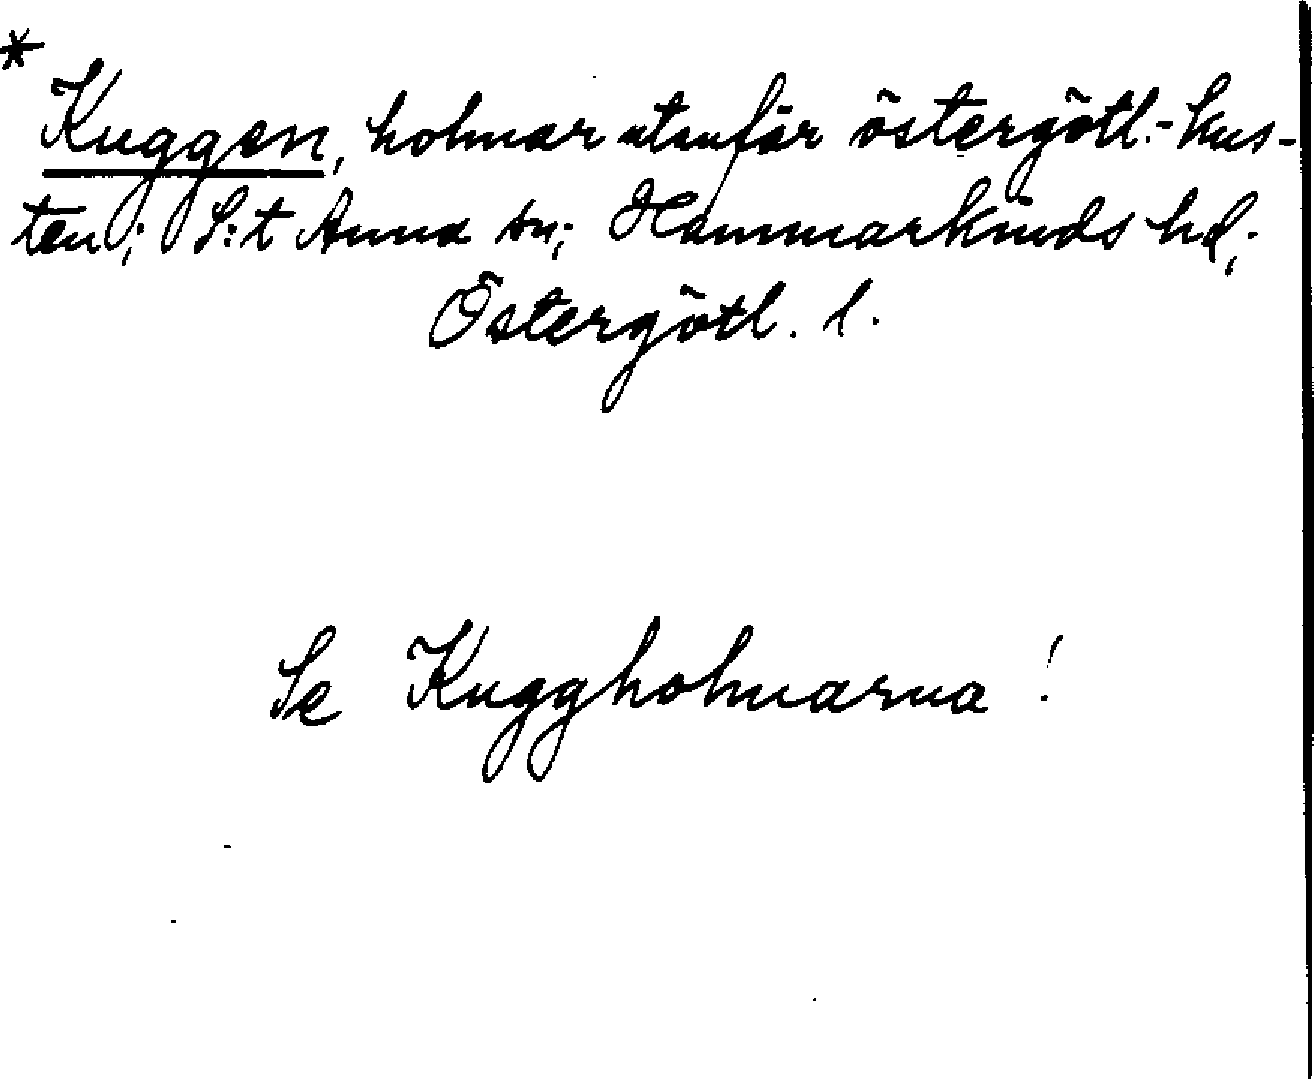 *
Kuggen, holmar utanför östergötl.-kus-
ten; S:t Anna sn; Hammarkinds hd;
Östergötl. l.
Se Kuggholmarna!